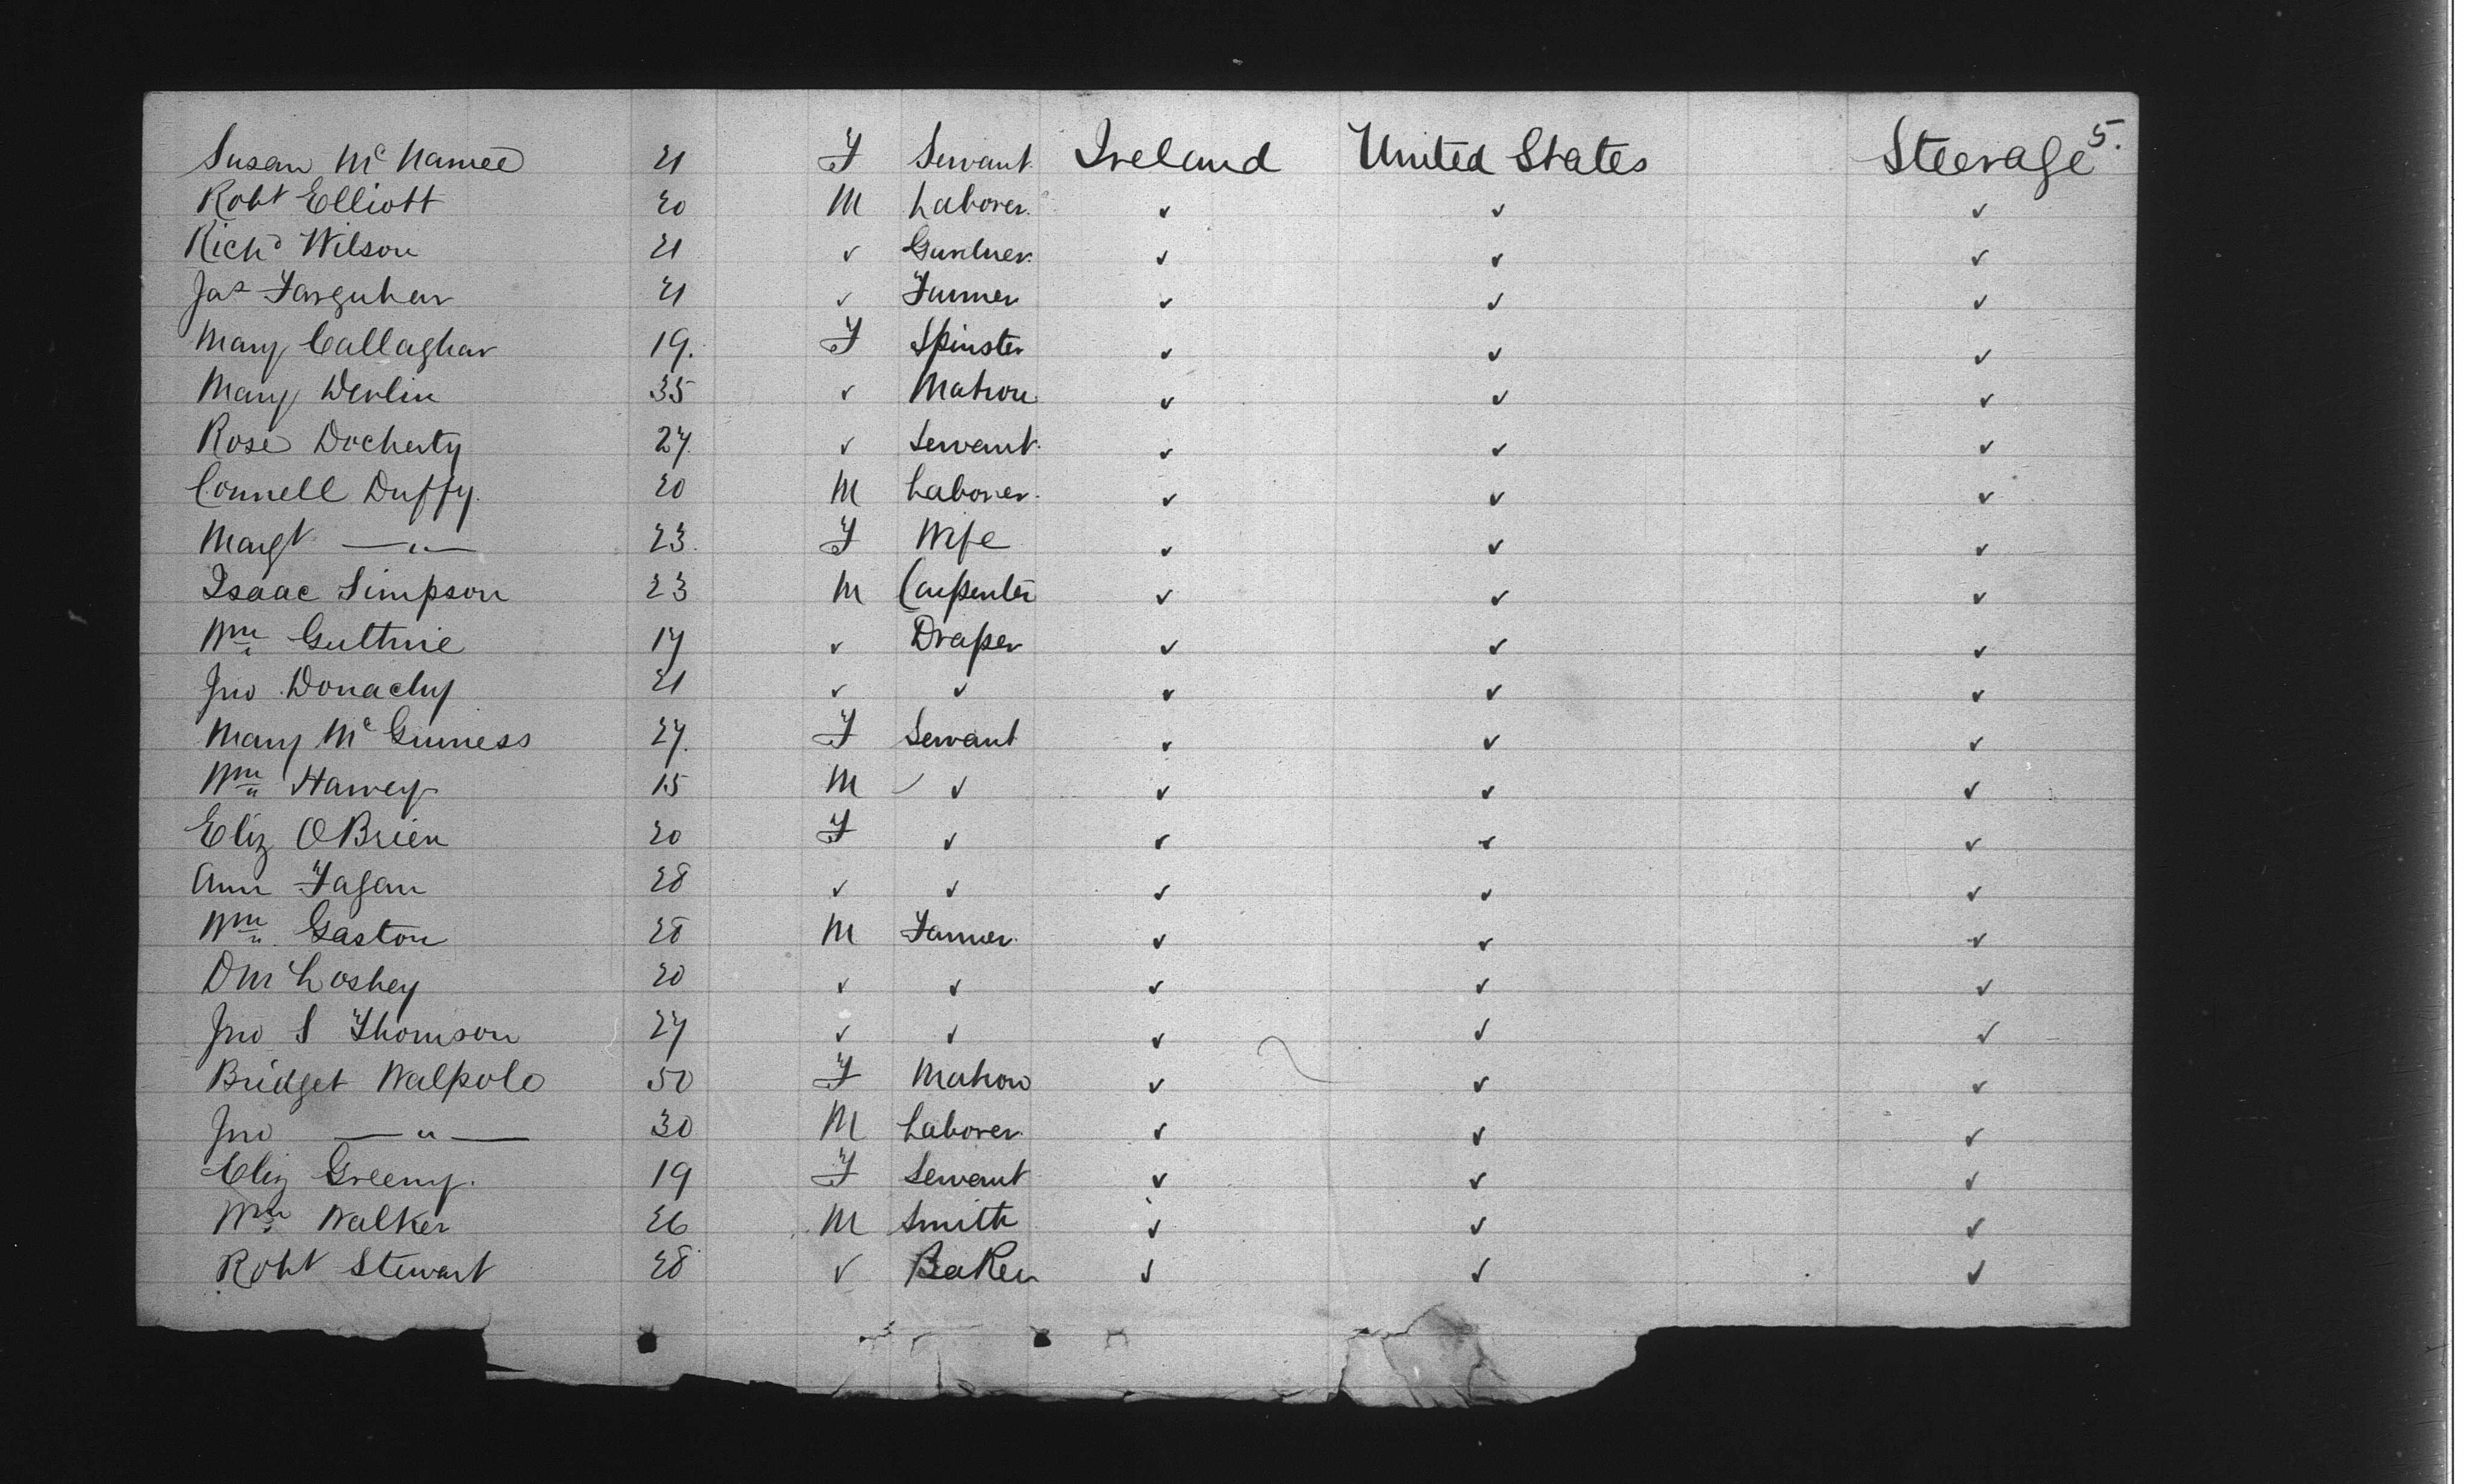 5.
Susan McNamee 21 F Servant Ireland United States Steerage
Robt Elliott 20 M Laborer ✓ ✓ ✓
Richd Wilson 21 ✓ Gardner ✓ ✓ ✓
Jas Farquhar 21 ✓ Farmer ✓ ✓ ✓
Mary Callaghan 19. F Spinster ✓ ✓ ✓
Mary Devlin 35 ✓ Matron ✓ ✓ ✓
Rose Docherty 27. ✓ Servant ✓ ✓ ✓
Connell Duffy. 20 M Laborer ✓ ✓ ✓
Margt —"— 23. F Wife ✓ ✓ ✓
Isaac Simpson 23 M Carpenter ✓ ✓ ✓
Wm Guthrie 17 ✓ Draper ✓ ✓ ✓
Jno Donachy 21 ✓ ✓ ✓ ✓ ✓
Mary McGinness 27. F Servant ✓ ✓ ✓
Wm Harvey 15 M ✓ ✓ ✓ ✓
Eliz OBrien 20 F ✓ ✓ ✓ ✓
Ann Fagan 28 ✓ ✓ ✓ ✓ ✓
Wm Gaston 28 M Farmer ✓ ✓ ✓
20 ✓ ✓ ✓ ✓ ✓
Jno S Thomson 27 ✓ ✓ ✓ ✓ ✓
Bridget Walpole 50 F Matron ✓ ✓ ✓
Jno —"— 30 M Laborer ✓ ✓ ✓
Eliz Greeny. 19 F Servant ✓ ✓ ✓
Wm Walker 26 M Smith ✓ ✓ ✓
Robt Stewart 28 ✓ Baker ✓ ✓ ✓